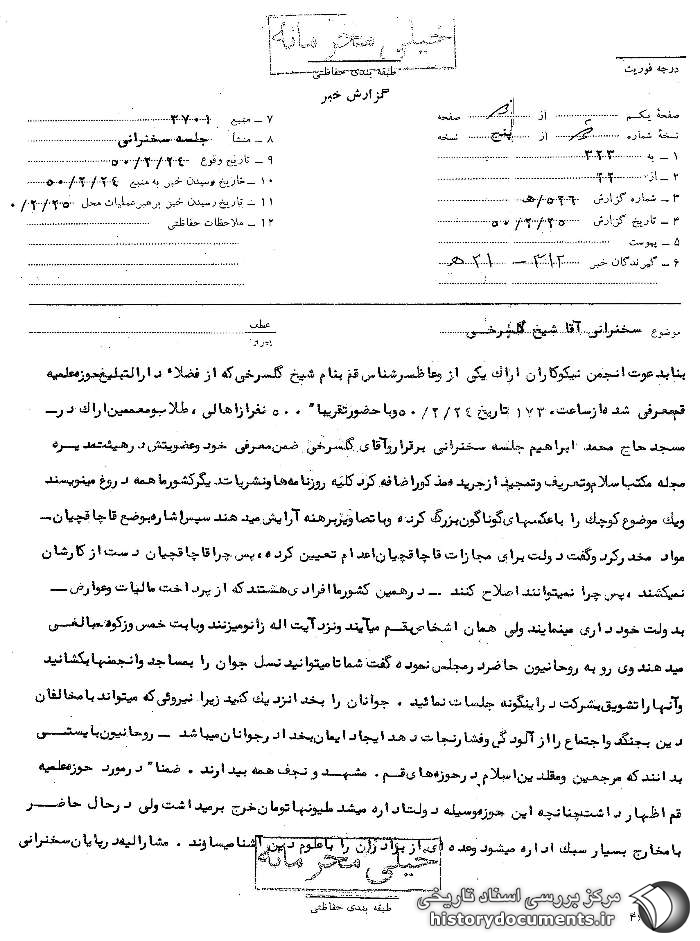 خیلی محرمانه
طبقه بندی حفاظتی
درجه فوریت
گزارش خبر
صفحهٔ یکم از صفحه
نسخهٔ شماره از پنج نسخه
۱ ـ به ۳۲۳
۲ ـ از ۲۲
۳ ـ شماره گزارش ۵۲۶/ه
۴ ـ تاریخ گزارش ۵۰/۲/۲۵
۵ ـ پیوست
۶ ـ گیرندگان خبر ۳۱۲ – ه ۲۱
۷ ـ منبع ۳۷۰۱
۸ ـ منشأ جلسه سخنرانی
۹ ـ تاریخ وقوع ۵۰/۲/۲۴
۱۰ ـ تاریخ رسیدن خبر به منبع ۵۰/۲/۲۴
۱۱ ـ تاریخ رسیدن خبر برهبر عملیات محل ۰/۲/۲۵
۱۲ ـ ملاحظات حفاظتی
موضوع سخنرانی آقا شیخ گلسرخی
عطف
پیرو
بنابدعوت انجمن نیکوکاران اراک یکی از وعاظ سرشناس قم بنام شیخ گلسرخی که از فضلاء دارالتبلیغ حوزه علمیه
قم معرفی شده از ساعت ۱۷۳۰ تاریخ ۵۰/۲/۲۴ و با حضور تقریباً ۵۰۰ نفر از اهالی ، طلاب و معممین اراک درـ
مسجد حاج محمد ابراهیم جلسه سخنرانی برقرار و آقای گلسرخی ضمن معرفی خود و عضویتش در هیئت مدیره
مجله مکتب اسلام و تعریف و تمجید از جریده مذکور اضافه کرد کلیه روزنامه ها و نشریات دیگر کشور ما همه دروغ مینویسند
و یک موضوع کوچک را با عکسهای گوناگون بزرگ کرده و با تصاویر برهنه آرایش میدهند سپس اشاره بوضع قاچاقچیان ـ
مواد مخدر کرد و گفت دولت برای مجازات قاچاقچیان اعدام تعیین کرده ، پس چرا قاچاقچیان دست از کارشان
نمیکشند ، پس چرا نمیتوانند اصلاح کنند . ـ در همین کشور ما افرادی هستند که از پرداخت مالیات و عوارض ـ
بدولت خودداری مینمایند ولی همان اشخاص بقم میآیند و نزد آیت اله زانو میزنند و بابت خمس و زکوه مبالغی
میدهند وی رو به روحانیون حاضر در مجلس نموده گفت شما تا میتوانید نسل جوان را بمساجد و انجمنها بکشانید
و آنها را تشویق بشرکت در اینگونه جلسات نمائید . جوانان را بخدا نزدیک کنید زیرا نیروئی که میتواند با مخالفان
دین بجنگد و اجتماع را از آلودگی و فشار نجات دهد ایجاد ایمان بخدا در جوانان میباشد ـ روحانیون بایستی
بدانند که مرجعین و مقلدین اسلام در حوزه های قم . مشهد و نجف همه بیدارند . ضمناً در مورد حوزه علمیه
قم اظهار داشت چنانچه این حوزه وسیله دولت اداره میشد ملیونها تومان خرج برمیداشت ولی در حال حاضر
با مخارج بسیار سبک اداره میشود و عده ای از برادران را با علوم دین آشنا میسازند . مشارالیه در پایان سخنرانی
خیلی محرمانه
طبقه بندی حفاظتی
مرکز بررسی اسناد تاریخی
historydocuments.ir